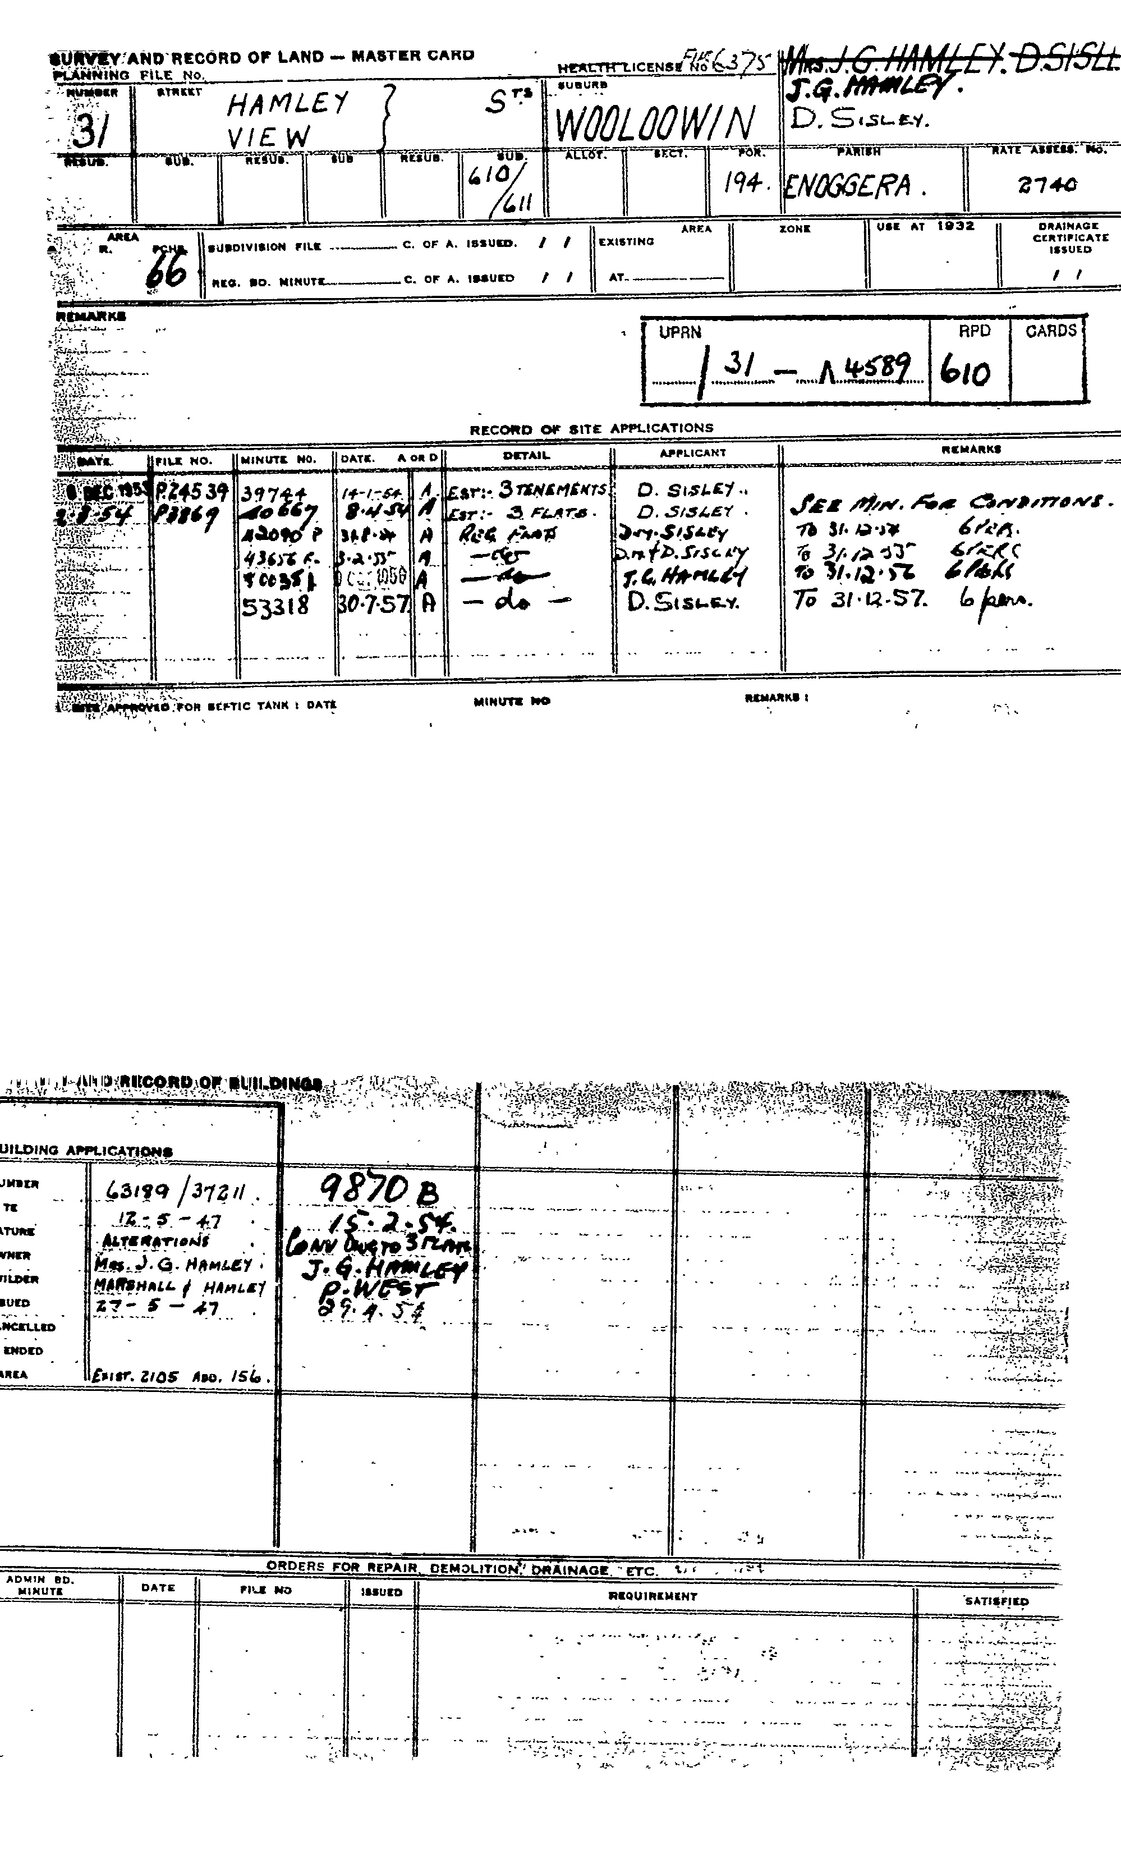 SURVEY AND RECORD OF LAND — MASTER CARD
PLANNING FILE No.
HEALTH LICENSE No File 6375
Mrs. J.G. HAMLEY. D.SISL
J.G. HAMLEY.
D. SISLEY.
NUMBER STREET SUBURB
31 HAMLEY } STS WOOLOOWIN
VIEW
RESUB. SUB. RESUB. SUB RESUB. SUB. ALLOT. SECT. POR. PARISH RATE ASSESS. NO.
610/611 194. ENOGGERA. 2740
AREA
R. PCHS.
66
SUBDIVISION FILE C. OF A. ISSUED. / /
REG. BD. MINUTE C. OF A. ISSUED / /
EXISTING AREA
AT
ZONE
USE AT 1932
DRAINAGE CERTIFICATE ISSUED
/ /
REMARKS
UPRN RPD CARDS
/ 31 — Λ 4589 610
RECORD OF SITE APPLICATIONS
DATE. FILE NO. MINUTE NO. DATE. A OR D DETAIL APPLICANT REMARKS
8 DEC 1953 P24539 39744 14-1-54. A EST:- 3 TENEMENTS D. SISLEY.
2.8.54 P3869 40667 8.4.54 A EST:- 3 FLATS. D. SISLEY. SEE MIN. FOR CONDITIONS.
A REG FLATS D.M. SISLEY TO 31.12.54 6 PER.
3.2.55 A —do D.M & D. SISLEY To 31.12.55 6 PERS
1956 A —do— J.G. HAMLEY To 31.12.56 6 PERS
53318 30.7.57 A — do — D. SISLEY. To 31.12.57. 6 pers.
SITE APPROVED FOR SEPTIC TANK : DATE MINUTE NO REMARKS :
AND RECORD OF BUILDINGS
UILDING APPLICATIONS
UMBER 63189/37211 9870 B
TE 12-5-47 15.2.54.
ATURE ALTERATIONS CONV DWG TO 3 FLATS
WNER MRS. J.G. HAMLEY. J.G. HAMLEY
UILDER MARSHALL & HAMLEY P. WEST
SUED 27-5-47 29.4.54
ANCELLED
ENDED
AREA EXIST. 2105 ADD. 156.
ORDERS FOR REPAIR, DEMOLITION, DRAINAGE, ETC.
ADMIN BD. MINUTE DATE FILE NO ISSUED REQUIREMENT SATISFIED